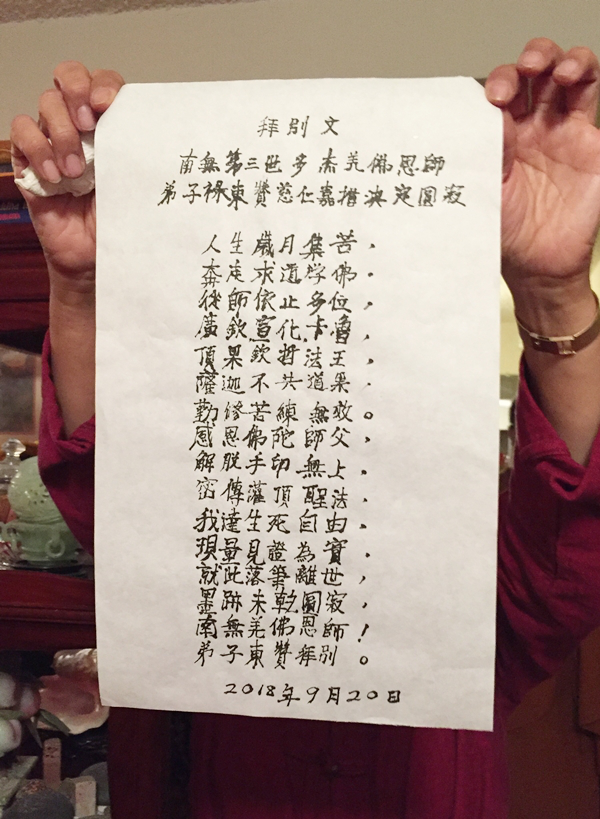 拜別文
南無第三世多杰羌佛恩師
弟子祿東贊慈仁嘉措決定圓寂
人生歲月集苦，
奔走求道學佛。
後師依止多位，
薩欽宣化卡魯，
頂果欽哲法王，
薩迦不共道果。
勤修苦練無數。
感恩佛陀師父，
解脫手印無上。
密傳灌頂聖法、
我達生死自由。
現量見證為寶，
就此落筆離世，
墨跡未乾圓寂，
南無羌佛恩師！
弟子東贊拜別。
2018年9月20日